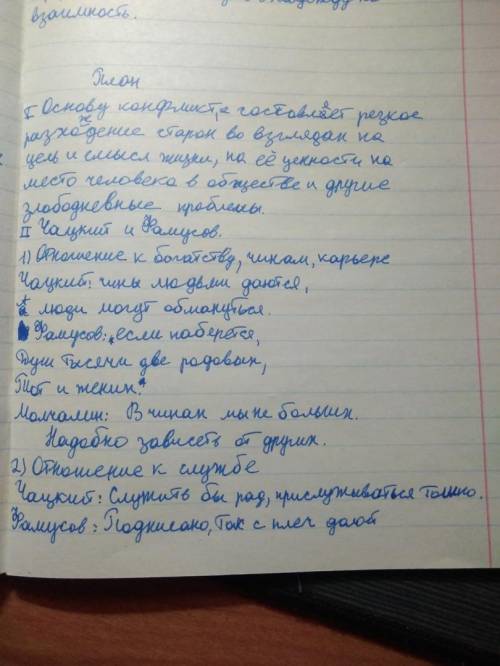 взаимность.
План
I Основу конфликта составляет резкое
расхождение сторон во взглядах на
цель и смысл жизни, на её ценности на
место человека в обществе и другие
злободневные проблемы.
II Чацкий и Фамусов.
1) Отношение к богатству, чинам, карьере
Чацкий: чины людьми даются,
а люди могут обмануться.
Фамусов: "если наберется,
Душ тысячи две родовых,
Тот и жених."
Молчалин: В чинах мы не больших.
Надобно зависеть от других.
2) Отношение к службе
Чацкий: Служить бы рад, прислуживаться тошно.
Фамусов: Подписано, так с плеч долой